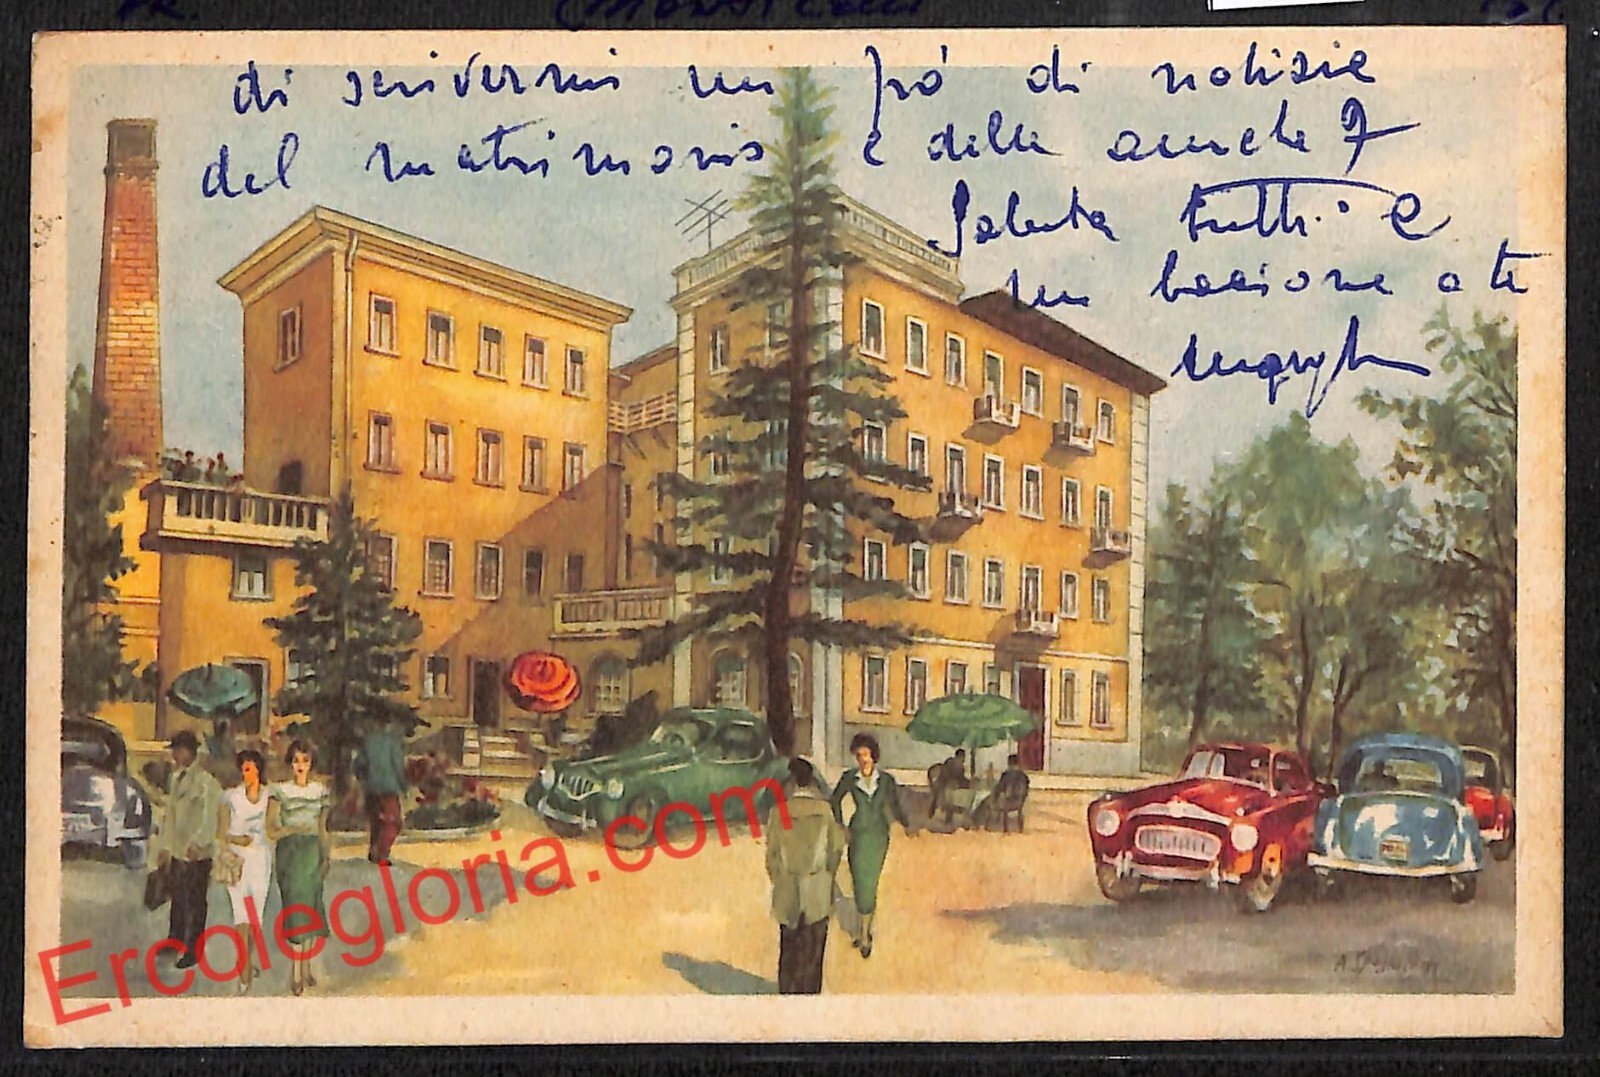 PR.
di scrivermi un pó di notizie
del matrimonio e delle amiche?
Saluta tutti e
un bacione a te
Ercolegloria.com